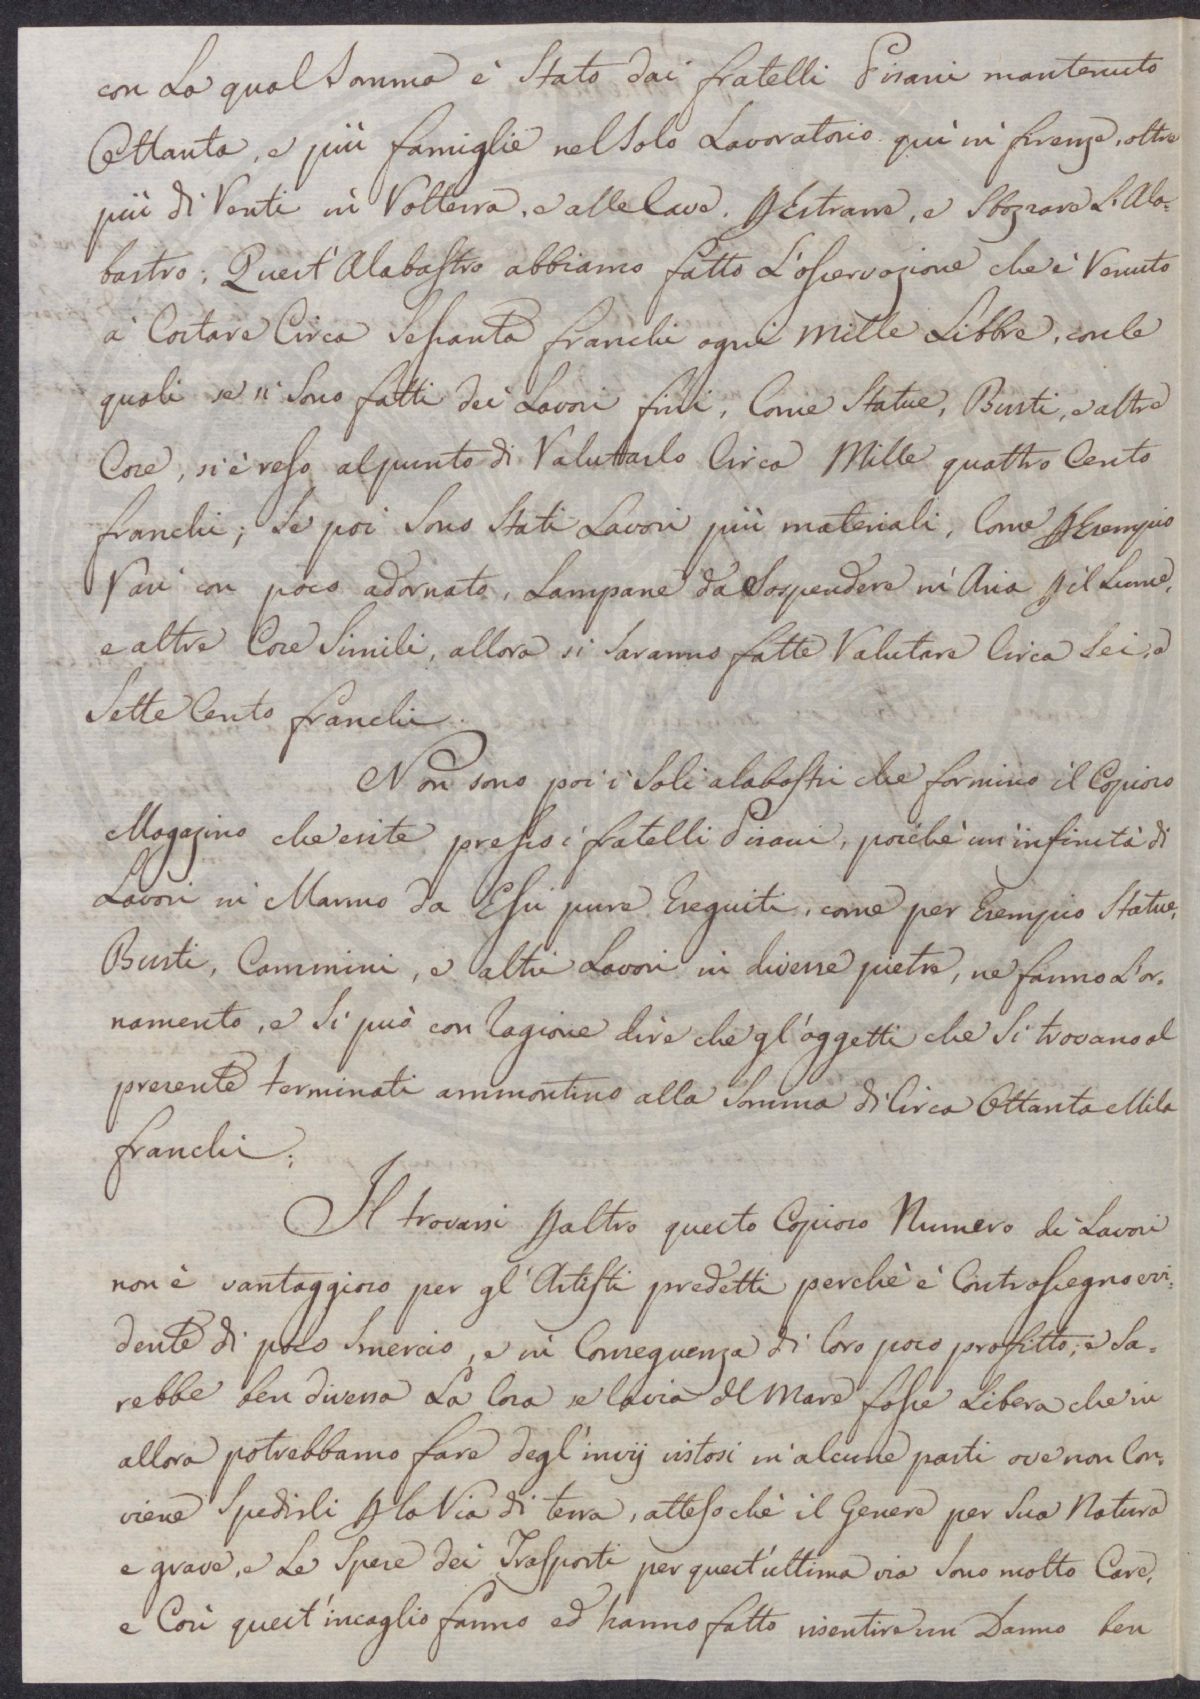 con La qual Somma è Stato dai fratelli Pisani mantenuto
Ottanta, e più famiglie nel Solo Lavoratorio quì in firenze, oltre
più di Venti in Volterra, e alle Cave, p Estrarre, e Sbozzare L'Ala=
bastro; Quest'Alabastro abbiamo fatto L'osservazione che è Venuto
a Costare Circa Sessanta franchi ogni Mille Libbre, con le
quali se si Sono fatti dei Lavori fini, Come Statue, Busti, e altre
Cose, si è reso al punto di Valuttarlo Circa Mille quattro Cento
franchi; Se poi Sono Stati Lavori più materiali, Come p Esempio
Vasi con poco adornato, Lampane da Sospendere in Aria p il Lume,
e altre Cose Simili, allora si Saranno fatte Valutare Circa Sei, a
Sette Cento franchi.
Non sono poi i Soli alabastri che formino il Copioso
Magazino che esite presso i fratelli Pisani, poichè un'infinità di
Lavori in Marmo da Essi pure Eseguiti, come per Esempio Statue,
Busti, Cammini, e altri Lavori in diverse pietre, ne fanno L'or=
namento, e Si può con ragione dire che gl'oggetti che Si trovano al
presente terminati ammontino alla Somma di Circa Ottanta Mila
franchi.
Il trovarsi p altro questo Copioso Numero di Lavori
non è vantaggioso per gl'Artisti predetti perchè è Controssegno evi=
dente di poco Smercio, e in Conseguenza di loro poco profitto; e Sa=
rebbe ben diversa La Cosa se la via del Mare fosse Libera che in
allora potrebbamo fare degl'invij vistosi in alcune parti ove non Con=
viene Spedirli p la Via di terra, attesochè il Genere per Sua Natura
e grave, e Le Spese dei Trasporti per quest'ultima via Sono molto Care,
e Così quest'incaglio fanno ed hanno fatto risentire un Danno ben